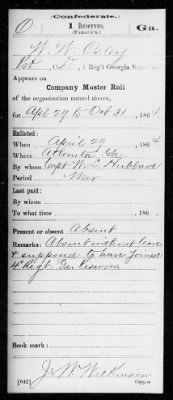 Confederate.
O 1 Reserves. Ga.
(Fannin's.)
W. W. Osley
Pvt, Co. , 1 Reg't Georgia Reserves.
Appears on
Company Muster Roll
of the organization named above,
for Apl 29 to Oct 31, 1864
Enlisted:
When April 29, 1864
Where Atlanta, Ga.
By whom Capt W. L. Hubbard
Period War
Last paid:
By whom
To what time , 186
Present or absent Absent
Remarks: Absent without leave
& supposed to have joined
4" Regt. Ga. Reserves
Book mark:
J. W. Wilkinson
(642) Copyist.